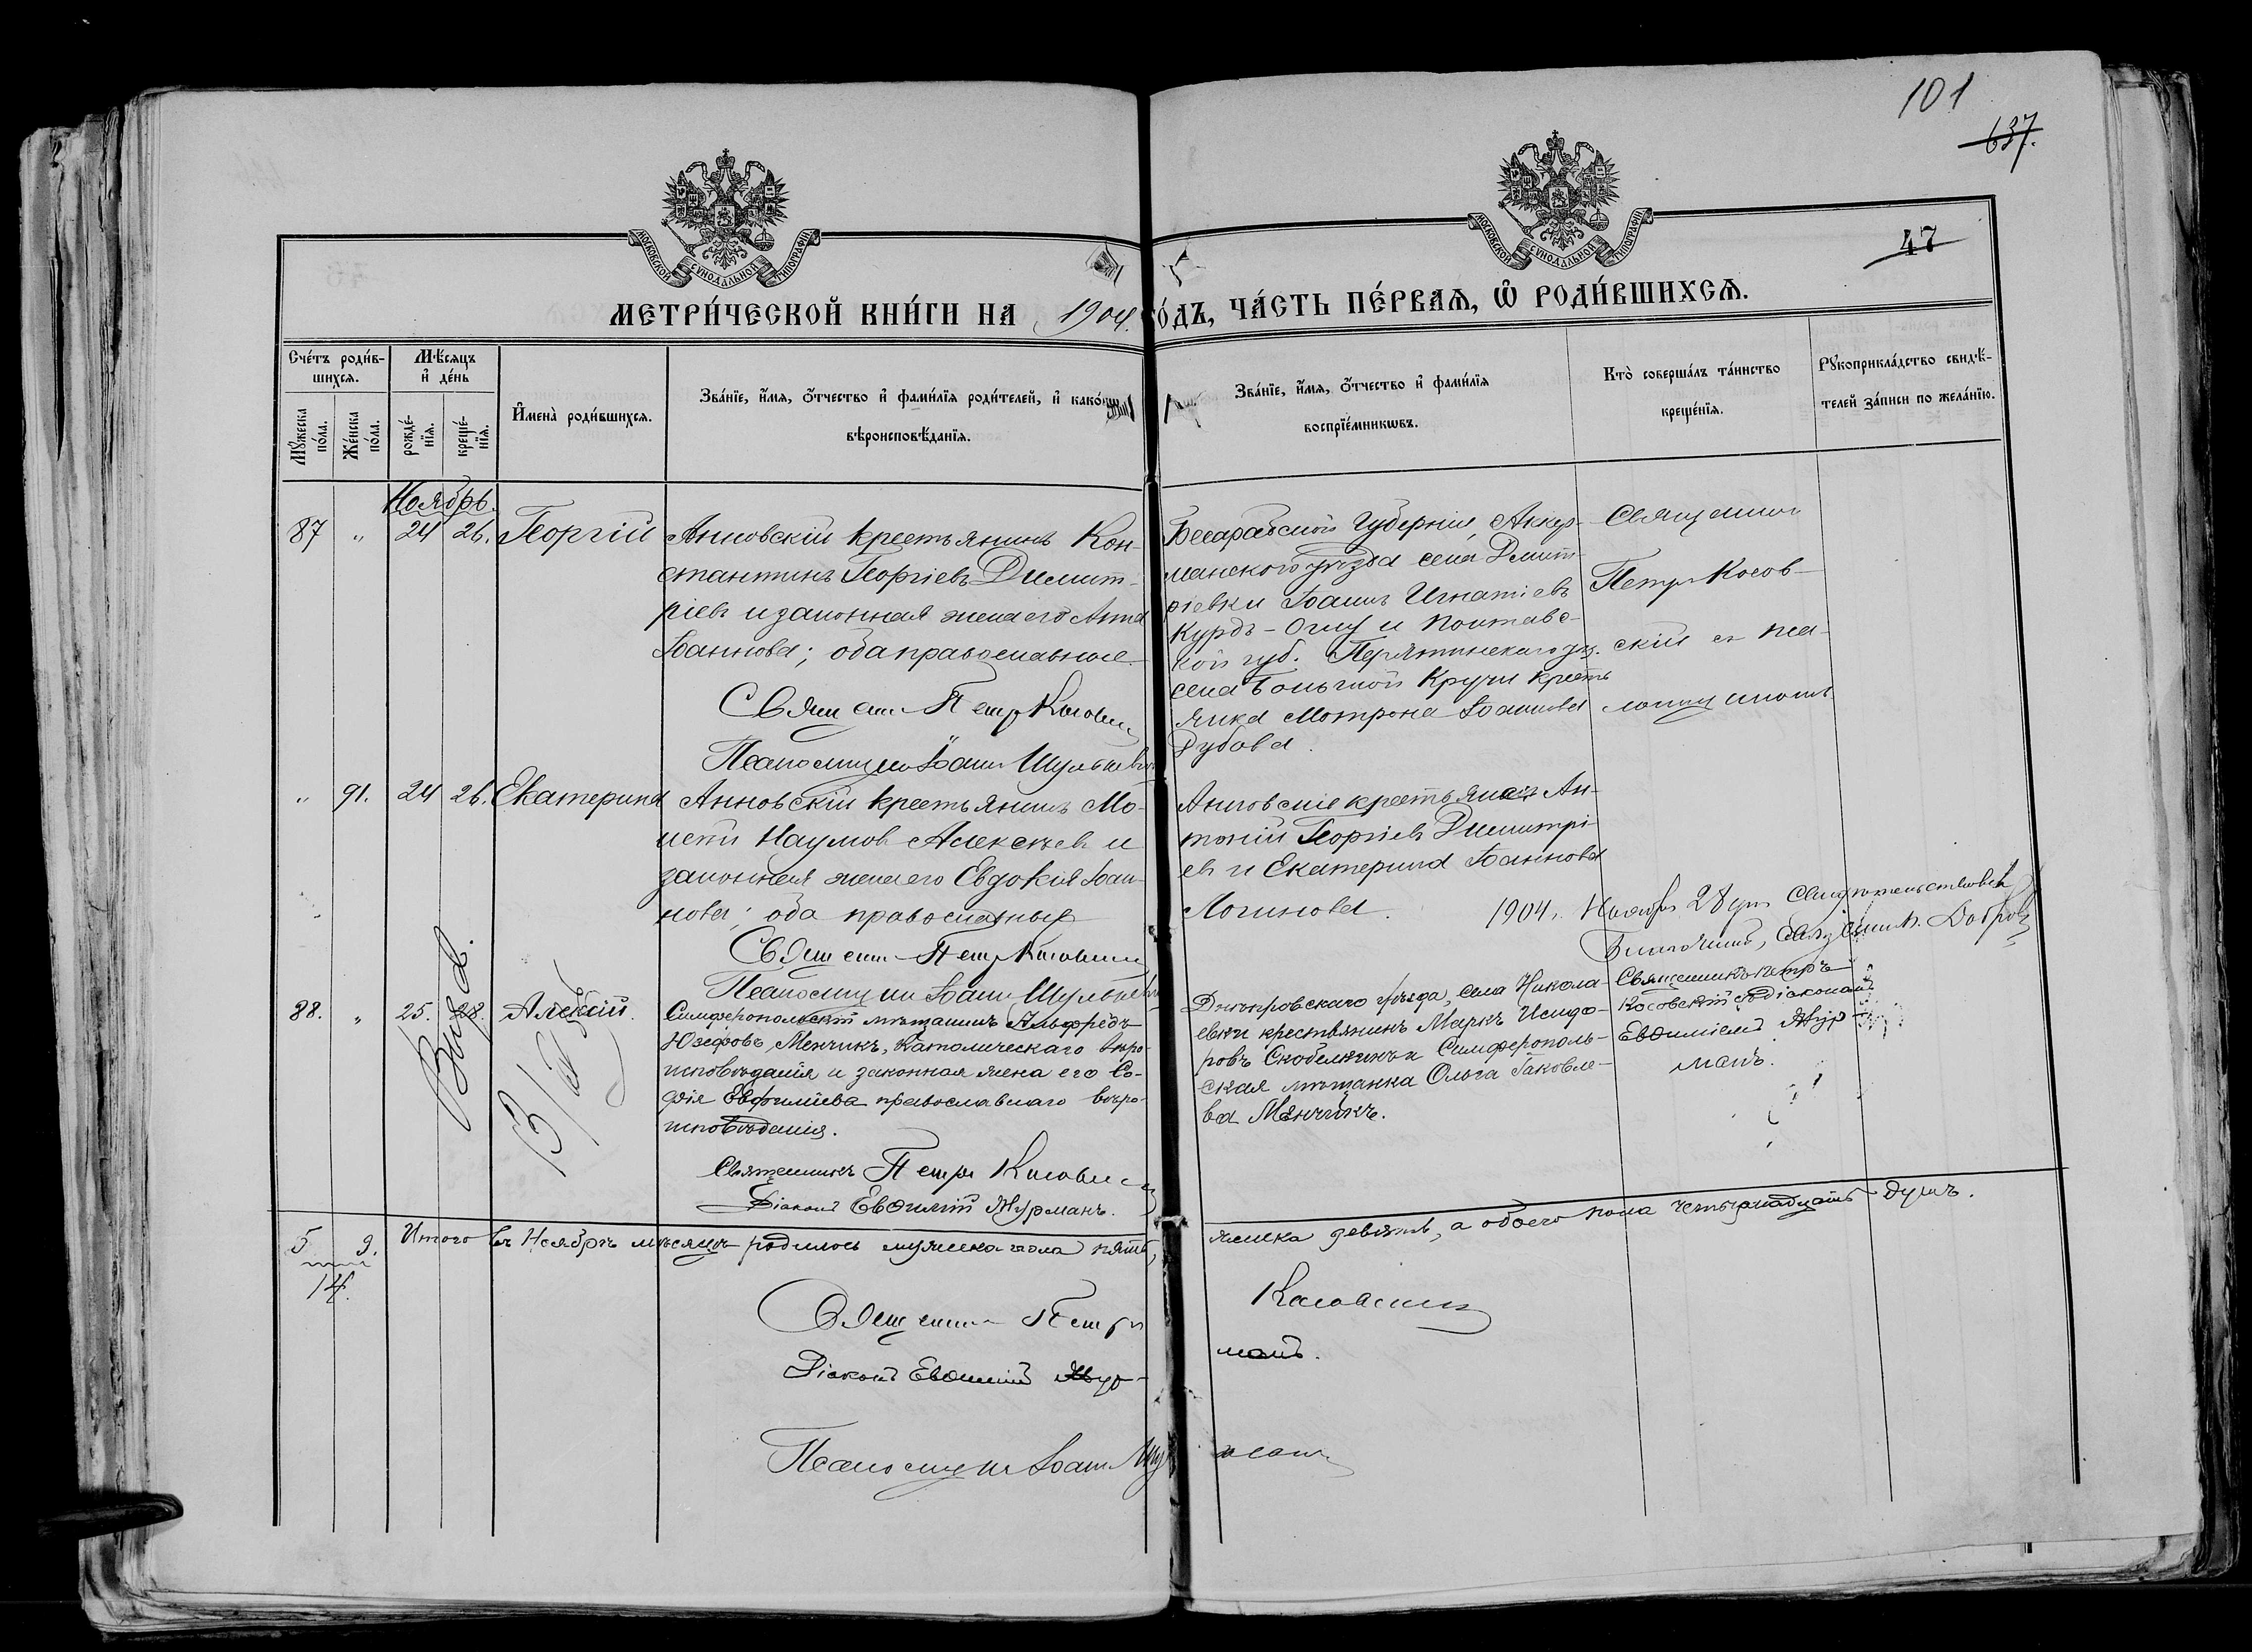 101
637.
47
МОСКОВСКОЙ СѴНОДАЛЬНОЙ ТИПОГРАФІИ
МОСКОВСКОЙ СѴНОДАЛЬНОЙ ТИПОГРАФІИ
МЕТРИ́ЧЕСКОЙ КНИ́ГИ НА 1904. ГО́ДЪ, ЧА́СТЬ ПЕ́РВАѦ, Ѡ҆ РОДИ́ВШИХСѦ.
Сче́тъ роди́в-
шихсѧ.
Мꙋ́жеска по́ла.
Же́нска по́ла.
Мѣ́сѧцъ
и҆ де́нь
рожде́-
нїѧ.
креще́-
нїѧ.
И҆мена̀ роди́вшихсѧ.
Зва́нїе, и҆́мѧ, ѻ҆́тчество и҆ фами́лїѧ роди́телей, и҆ како́гѡ
вѣроисповѣ́данїѧ.
Зва́нїе, и҆́мѧ, ѻ҆́тчество и҆ фами́лїѧ
воспрїе́мникѡвъ.
Кто̀ соверша́лъ та́инство
креще́нїѧ.
Рꙋкоприкла́дство свидѣ́-
телей за́писи по жела́нїю.
Ноябрь.
87 " 24 26. Георгій
Анновскій крестьянинъ Кон-
стантинъ Георгіевъ Димит-
ріевъ и законная жена его Анна
Іоаннова; оба православные.
Священ Петръ Косовскій
Псаломщикъ Іоаннъ
Бессарабской губерніи, Аккер-
манского уѣзда села Дмит-
ріевки Іоаннъ Игнатіевъ
Курдъ-Оглу и Полтавс-
кой губ. Пирятинскаго уѣз.
села Большой Кручи кресть
янка Мотрона Іоаннова
Дубова.
Священникъ
Петръ Косов-
скій съ пса-
ломщикомъ
" 91. 24 26. Екатерина
Анновскій крестьянинъ Мо-
исей Наумов Алексѣев и
законная жена его Евдокія Іоан-
нова; оба православные
Священ Петръ Косовскій
Псаломщикъ Іоаннъ
Анновскіе крестьяне Ан-
тоній Георгіев Димитрі-
ев и Екатерина Іоаннова
Логинова.
1904, Ноября 28 дня Свидѣтельствовалъ
Благочинный, Священникъ
Выд.
88. " 25. 28. Алексій.
Симферопольскій мѣщанинъ Альфредъ
Юзефовъ Менчикъ, католическаго вѣро-
исповѣданія и законная жена его Со-
фія Евфиміева православнаго вѣро-
исповѣданія.
Священникъ Петръ Косовскій
Діаконъ Евѳимій Журманъ.
Днѣпровскаго уѣзда, села Никола-
евки крестьянинъ Маркъ Исидо-
ровъ Скобелкинъ и Симферополь-
ская мѣщанка Ольга Іаковле-
ва Менчикъ.
Священникъ Петръ
Косовскій съ діакономъ
Евѳиміемъ Жур-
манъ.
5 9.
14.
Итого въ Ноябрѣ мѣсяцѣ родилось мужска пола пять,
женска девять, а обоего пола четырнадцать душъ.
Священникъ Петръ Косовскій
Діаконъ Евѳимій Жур-
манъ.
Псаломщикъ Іоаннъ